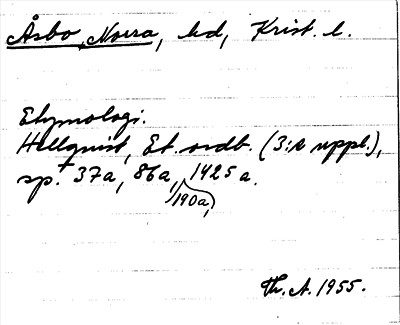 Åsbo, Norra, hd, Krist. l.
Etymologi.
Hellquist, Et. ordb. (3:e uppl.),
sp. 37a, 86a, 190a, 1425a.
Th. A. 1955.